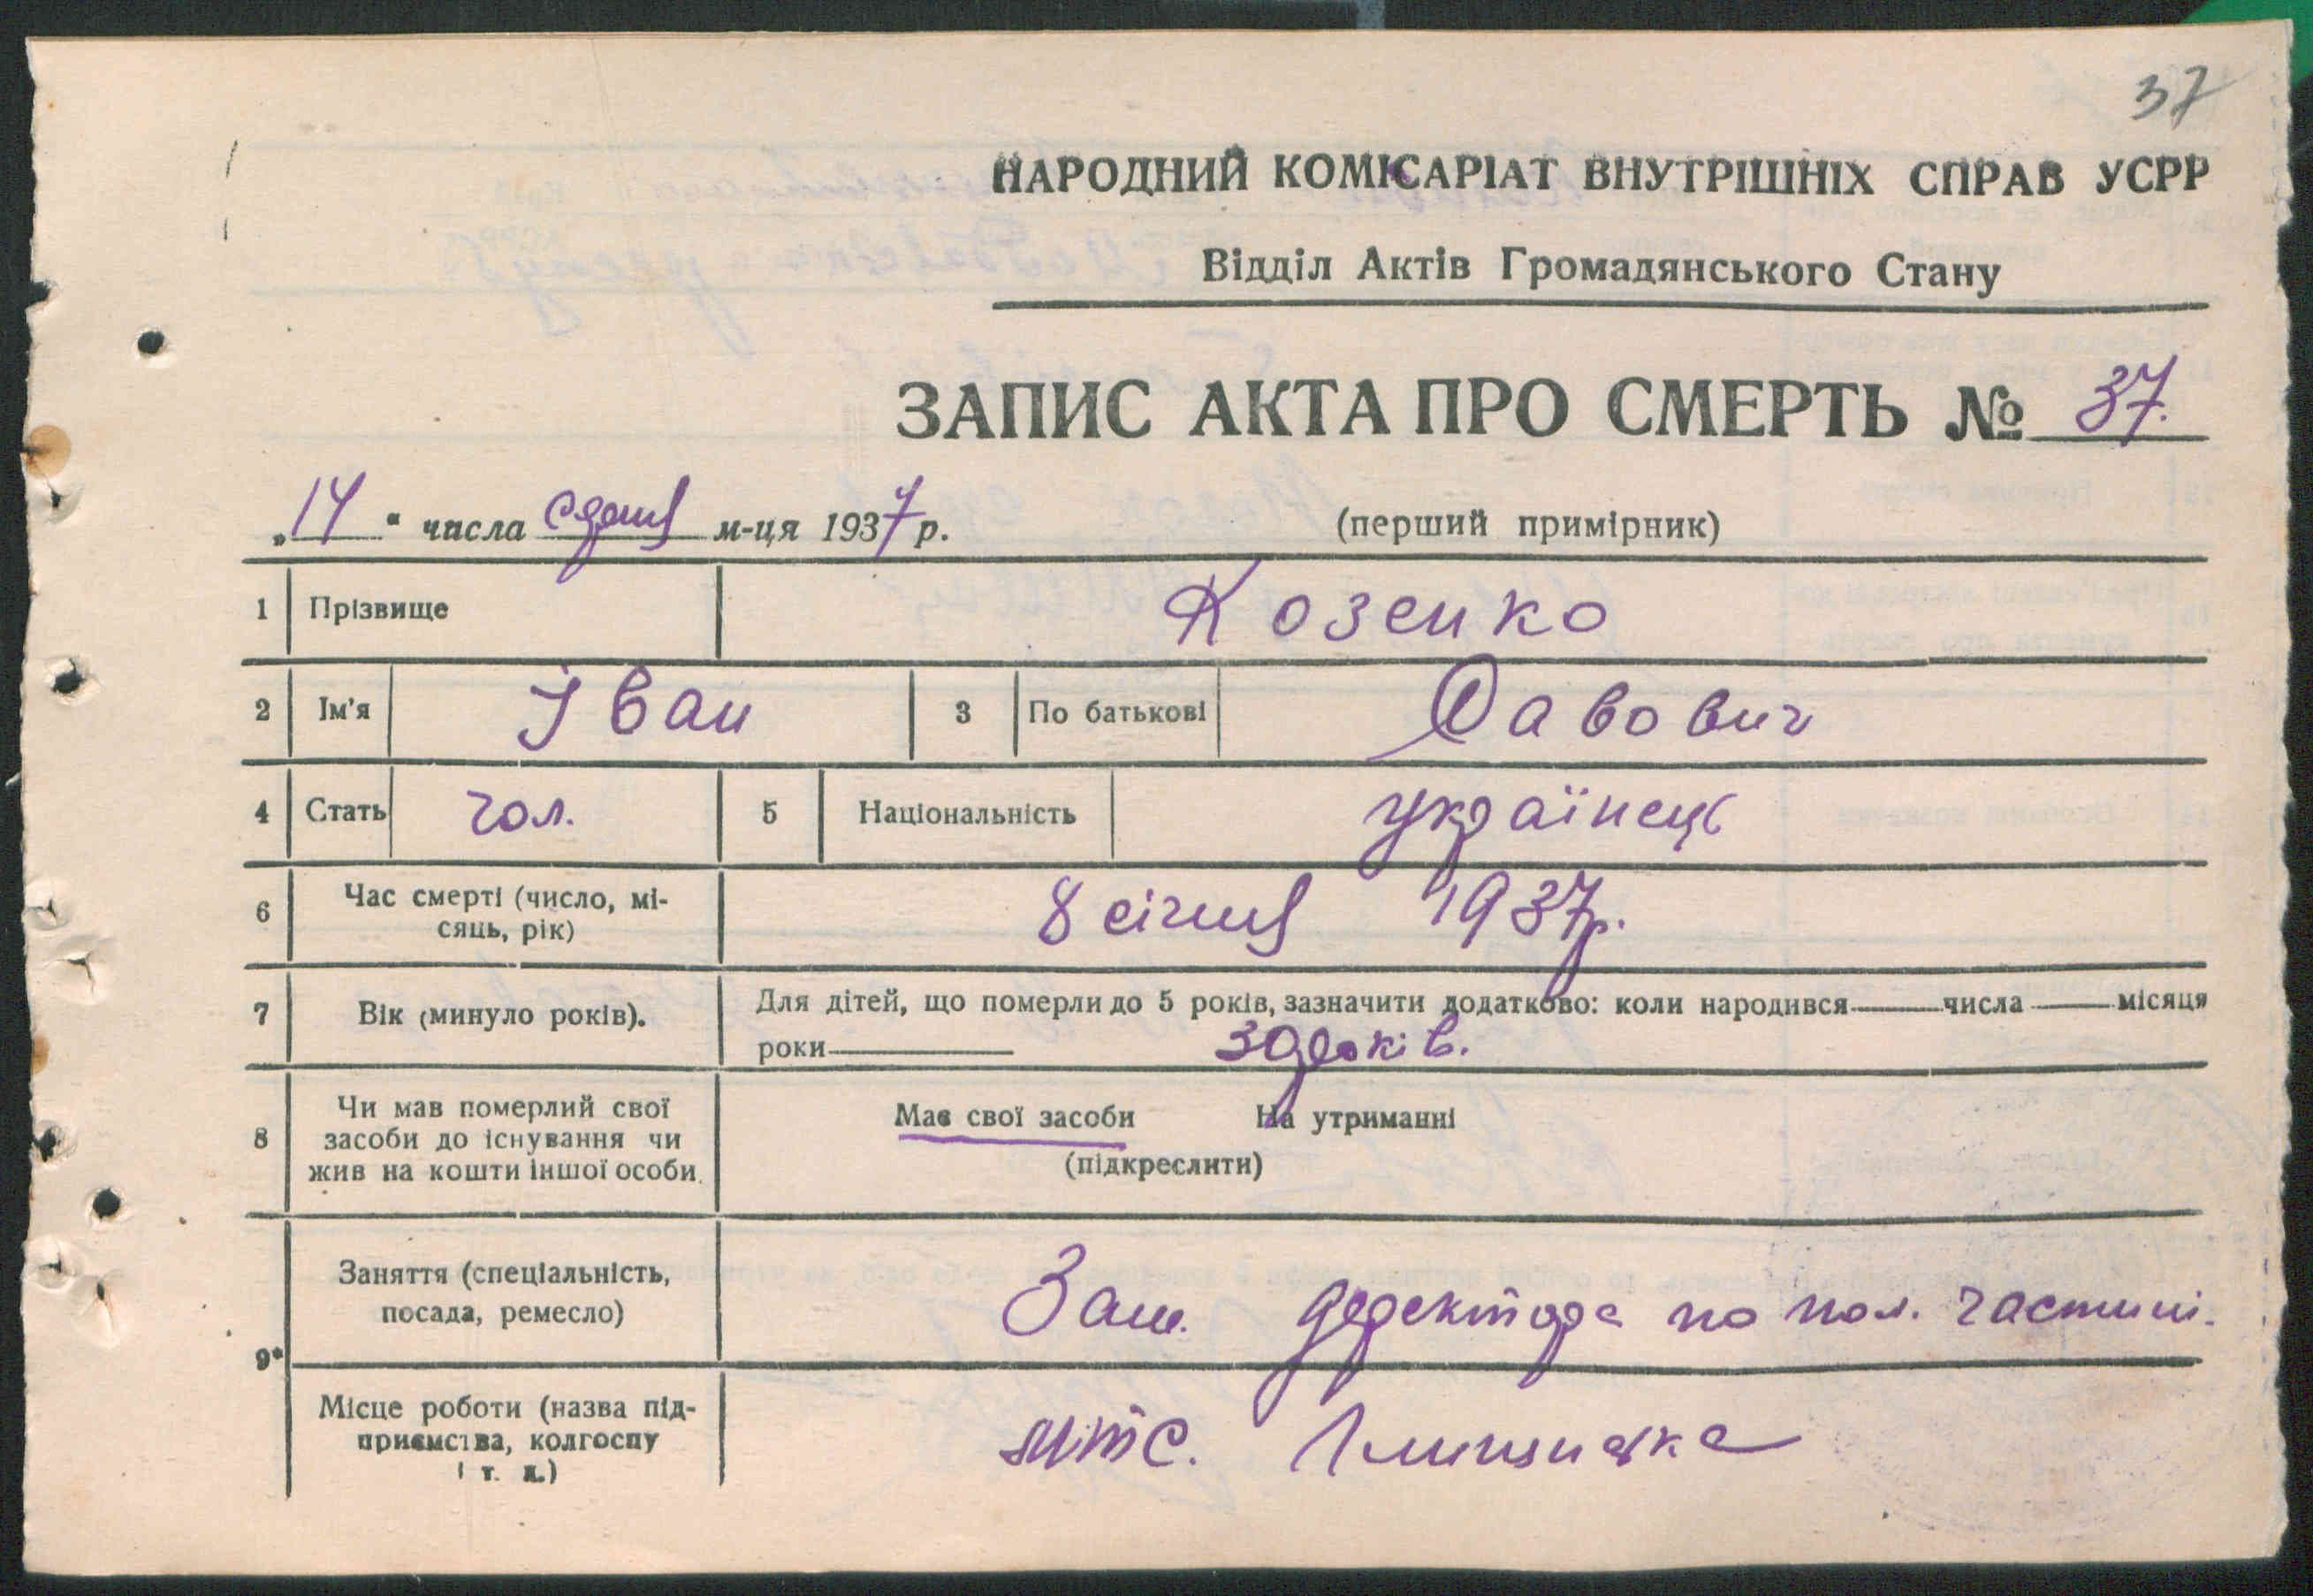 37
НАРОДНИЙ КОМІСАРІАТ ВНУТРІШНІХ СПРАВ УСРР
Відділ Актів Громадянського Стану
ЗАПИС АКТА ПРО СМЕРТЬ № 37.
„14“ числа січня м-ця 1937 р. (перший примірник)
1 Прізвище Козенко
2 Ім'я Іван 3 По батькові Савович
4 Стать чол. 5 Національність українець
6 Час смерті (число, мі-
сяць, рік) 8 січня 1937р.
7 Вік (минуло років). Для дітей, що померли до 5 років, зазначити додатково: коли народився — числа — місяця
роки — 39 років.
8 Чи мав померлий свої
засоби до існування чи
жив на кошти іншої особи.
Має свої засоби На утриманні
(підкреслити)
9*
Заняття (спеціальність,
посада, ремесло) Зам. деректора по пол. частині.
Місце роботи (назва під-
приємства, колгоспу
і т. д.) мтс.